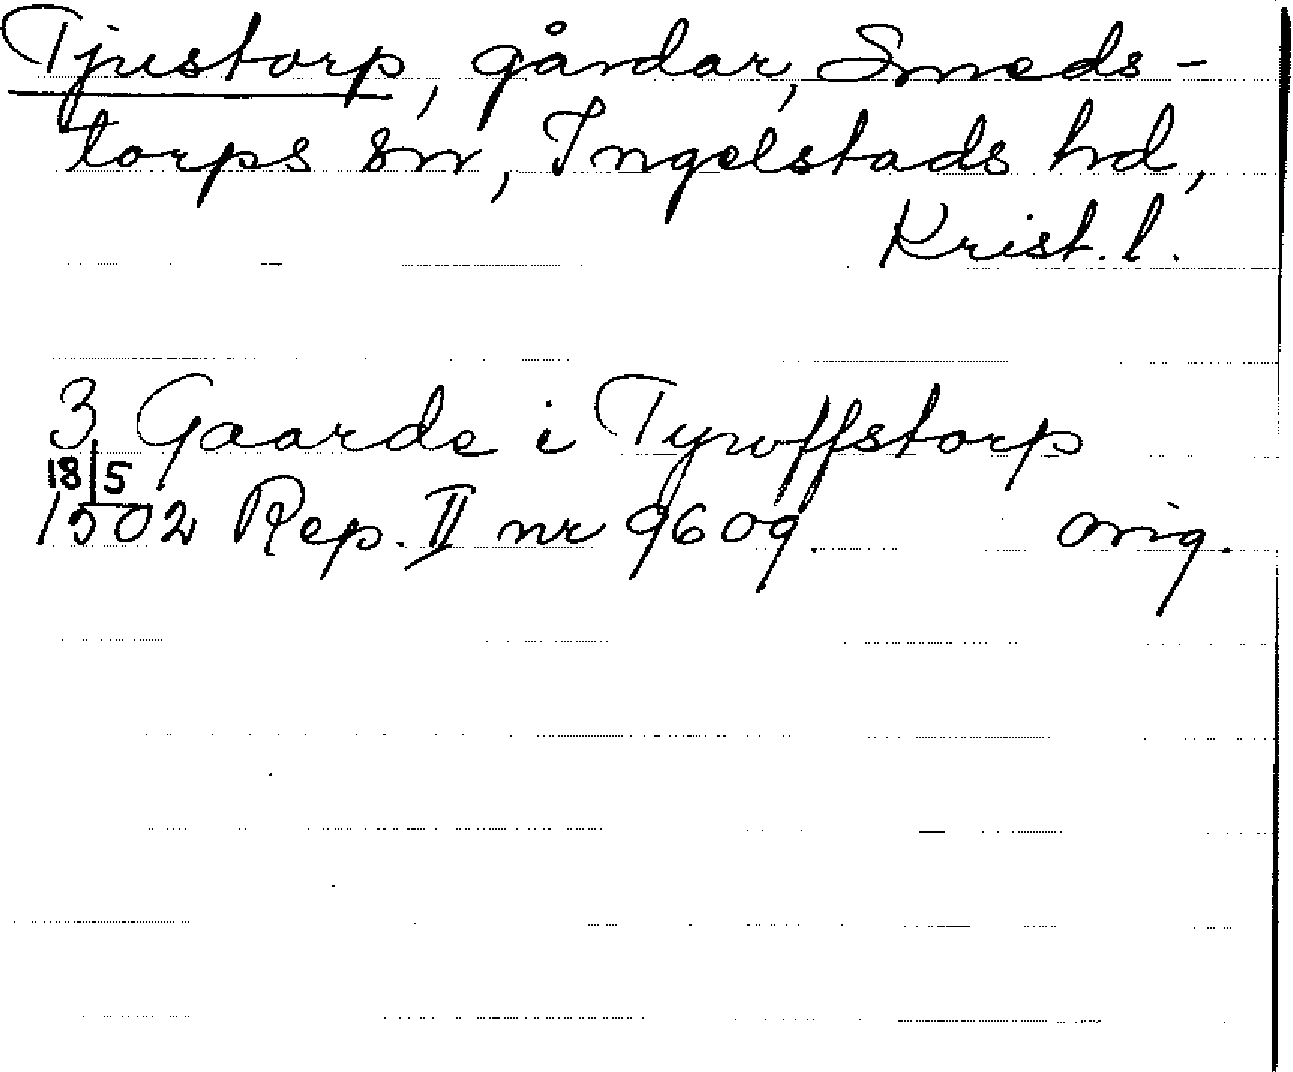 Tjustorp, gårdar, Smeds-
torps sn, Ingelstads hd,
Krist. l.
3 Gaarde i Tywffstorp
18/5
1502 Rep. II nr 9609. orig.